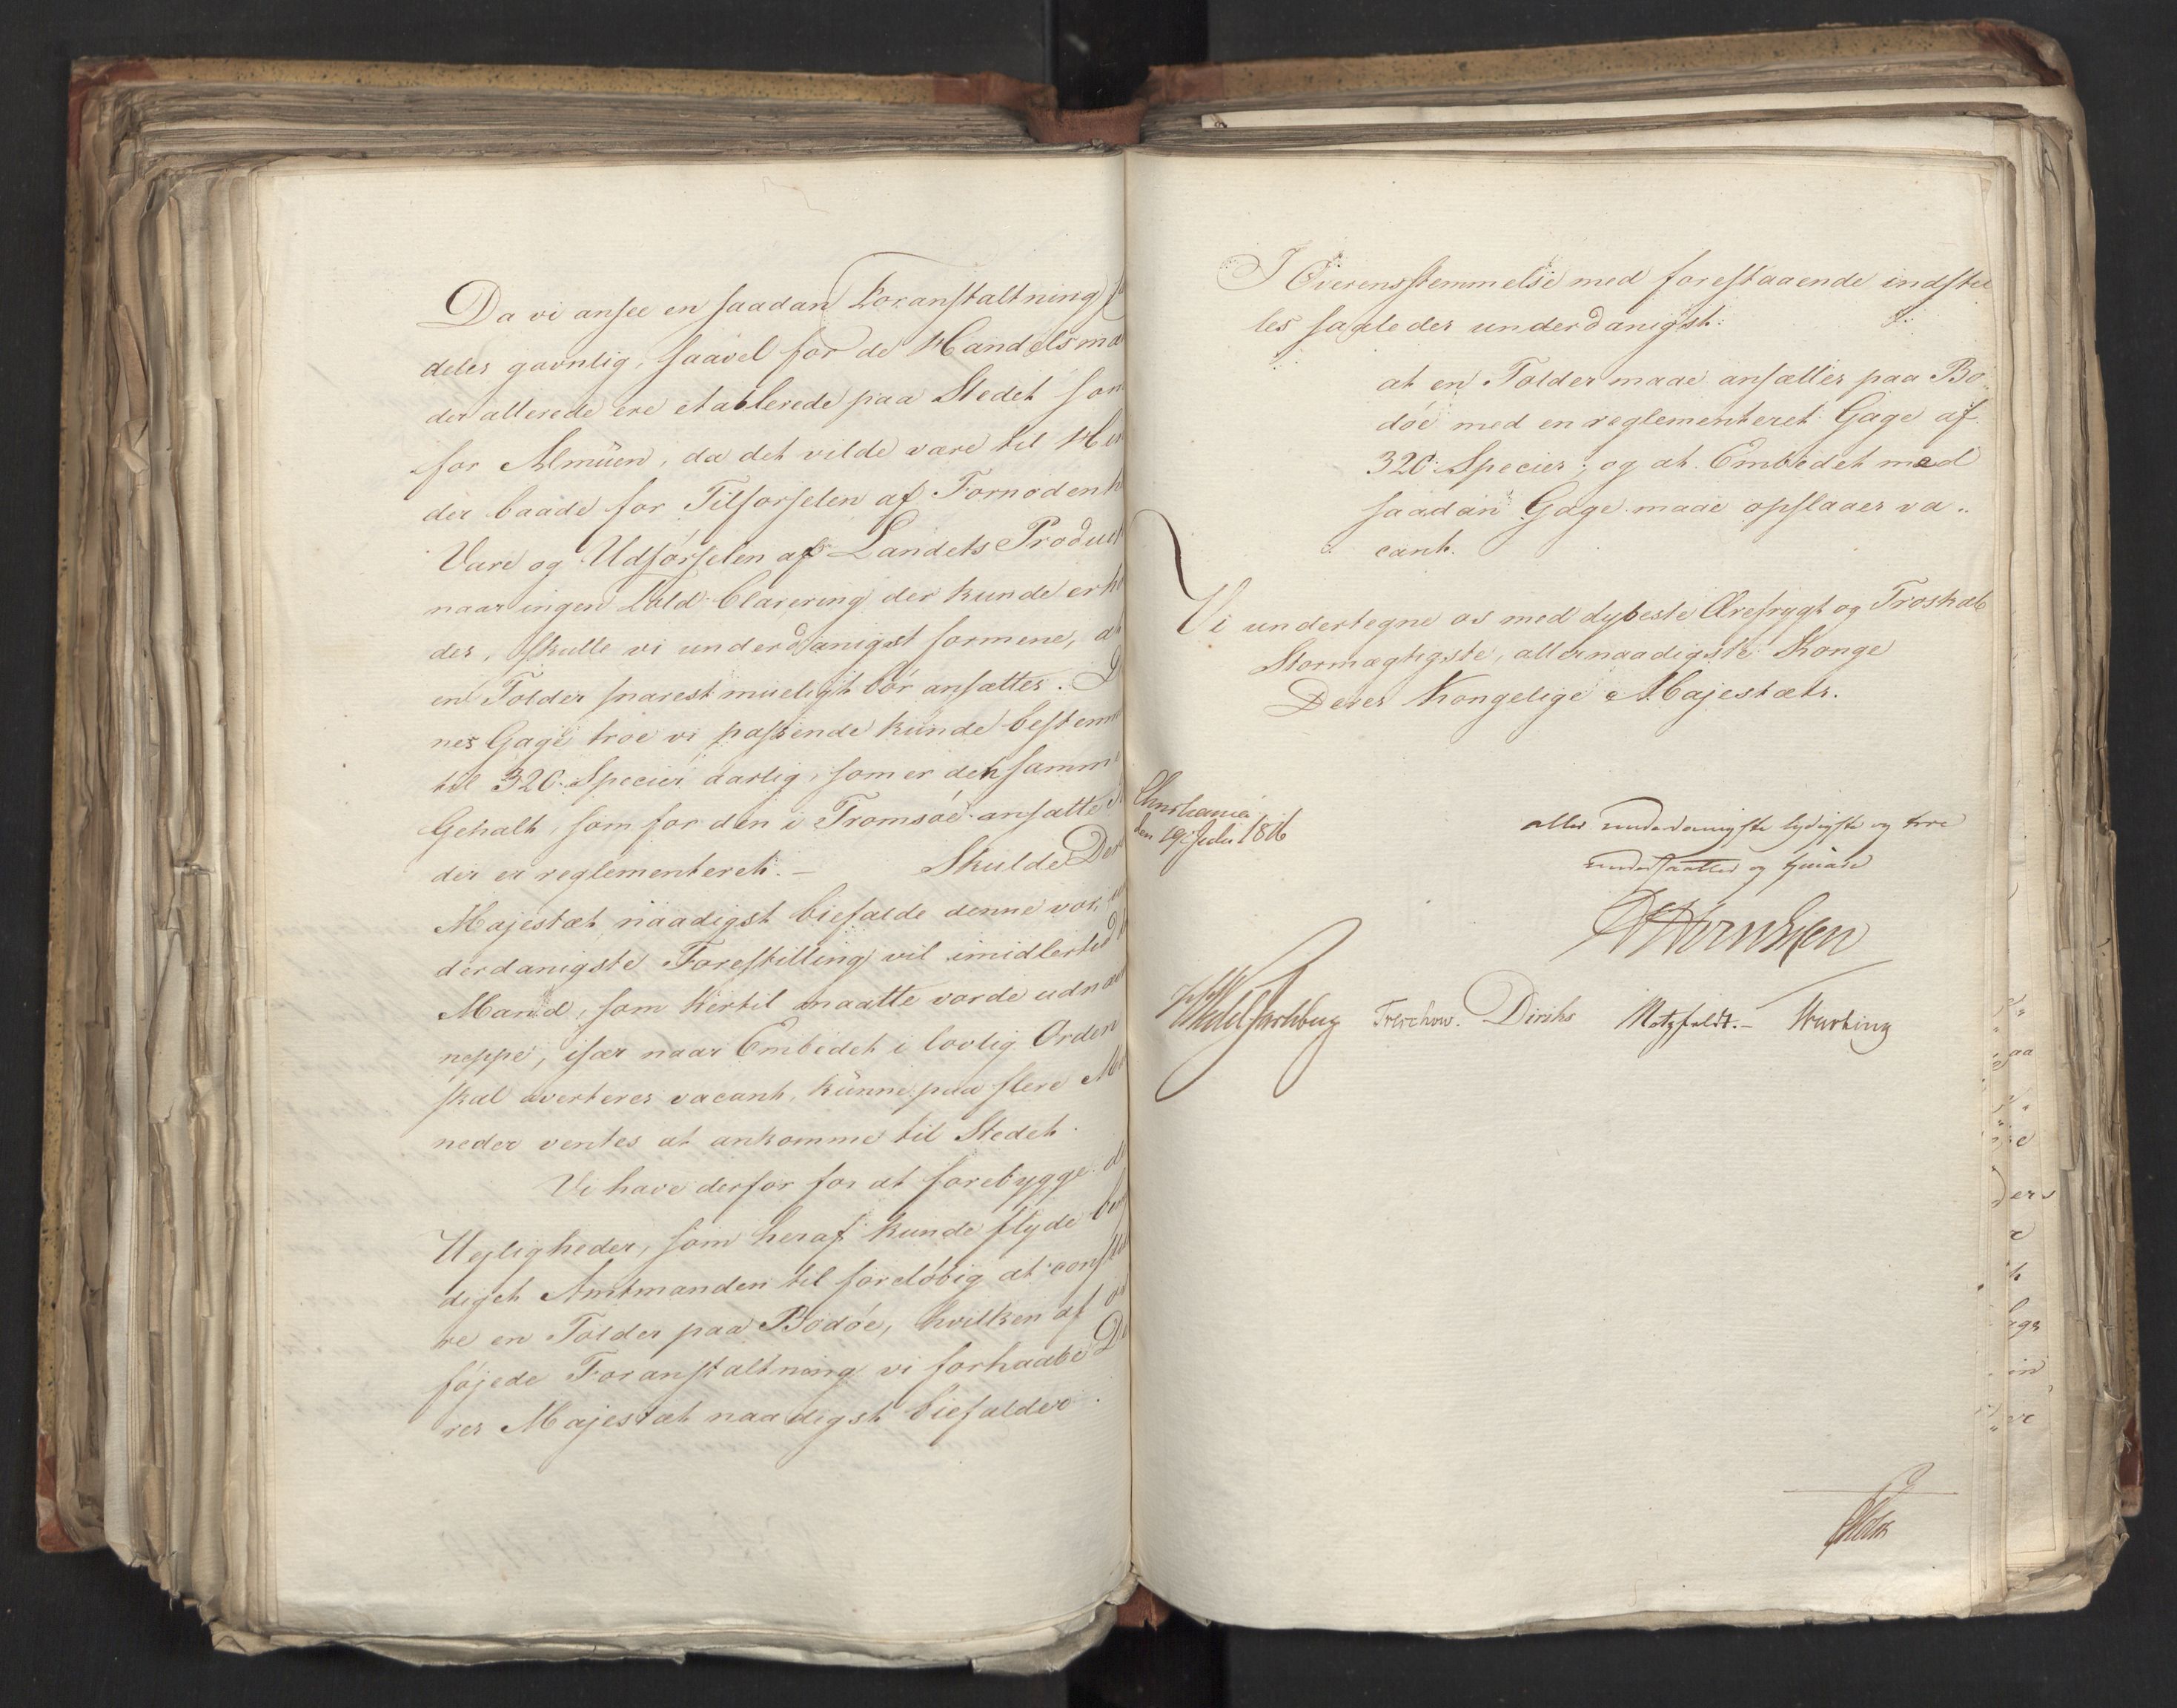 Da vi ansee en saadan Foranstaltning
deles gavnlig, saavel for de Handelsmæ
der allerede ere etablerede paa Stedet som
for Almuen, da det vilde være til Hin
der baade for Tilførselen af Fornødenh
Vare og Udførselen af Landets Product
naar ingen Told-Clarering der kunde erh
des, skulle vi underdanigst formene, at
en Tolder snarest mueligt bør ansættes. D
nes Gage troe vi passende kunde bestemm
til 320 Species aarlig, som er den samme
Gehalt, som for den i Tromsøe ansatte
der er reglementeret. — Skulde Der
Majestæt naadigst biefalde denne vor
derdanigste Forestilling vil imidlertid
Mand, som hertil maatte vorde udnæv
neppe, især naar Embedet i lovlig Orden
skal averteres vacant, kunne paa flere Ma
neder ventes at ankomme til Stedet.
Vi have derfor for at forebygge
Uejligheder, som heraf kunde flyde
diget Amtmanden til foreløbig at constit
re en Tolder paa Bodøe, hvilken af os
føjede Foranstaltning vi forhaabe De
res Majestæt naadigst biefalder.
I Overensstemmelse med forestaaende indstil
les saaledes underdanigst:
at en Tolder maae ansættes paa Bo-
døe med en reglementeret Gage af
320 Species; og at Embedet med
saadan Gage maae opslaaes va-
cant.
Vi undertegne os med dybeste Ærefrygt og Troskab
Stormægtigste, allernaadigste Konge
Deres Kongelige Majestæts.
Christiania
den 19 Juli 1816
aller underdanigste lydigste og troe
undersaatter og tjenere
Wedel Jarlsberg Treschow. Diriks Motzfeldt. — Krebting
Holst